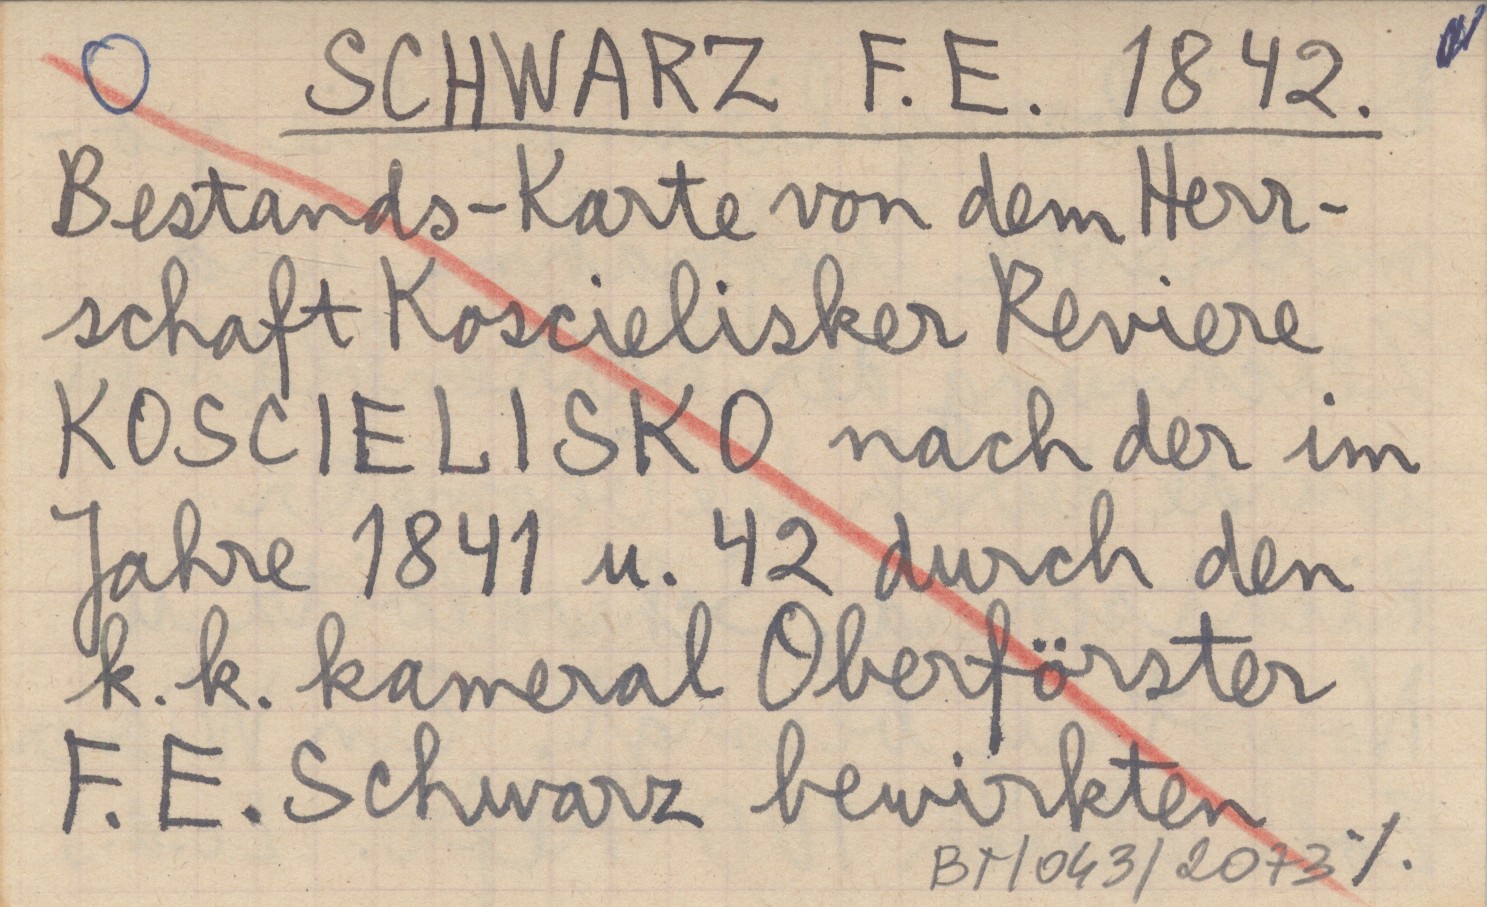 SCHWARZ F. E. 1842.
Bestands-Karte von dem Herr-
schaft Koscielisker Reviere
KOSCIELISKO nach der im
Jahre 1841 u. 42 durch den
k. k. kameral Oberförster
F. E. Schwarz bewirkten
./.
BT/043/2073